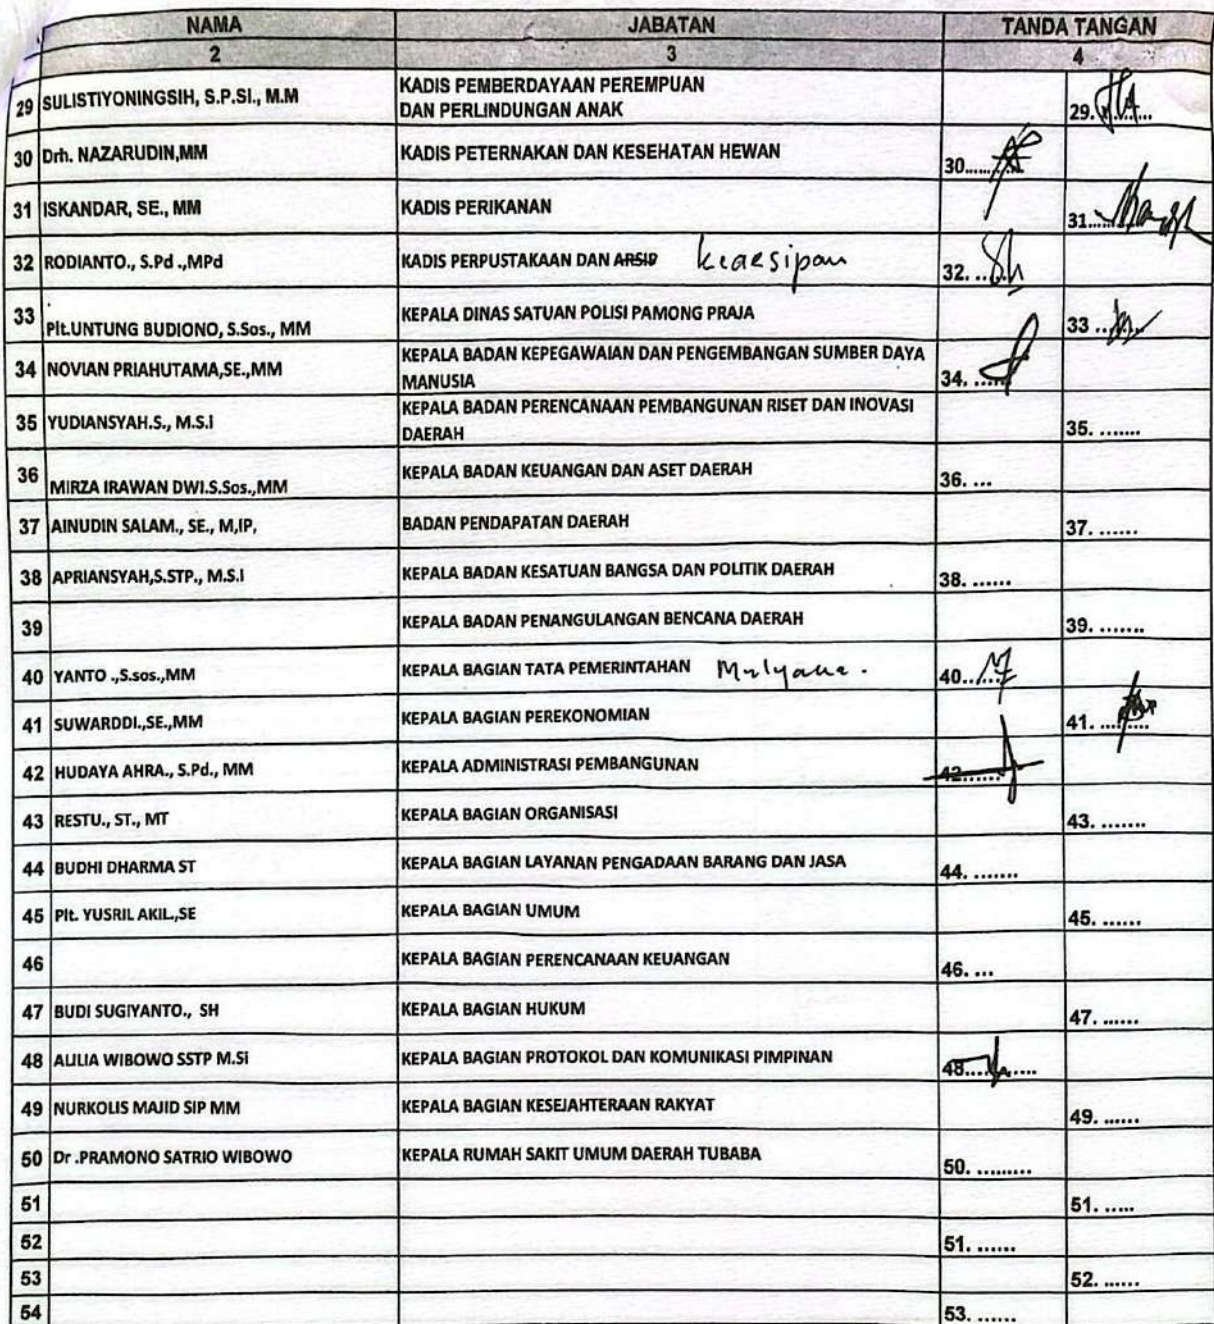 NAMA JABATAN TANDA TANGAN
2 3 4
29 SULISTIYONINGSIH, S.P.SI., M.M KADIS PEMBERDAYAAN PEREMPUAN
DAN PERLINDUNGAN ANAK 29.
30 Drh. NAZARUDIN,MM KADIS PETERNAKAN DAN KESEHATAN HEWAN 30.........
31 ISKANDAR, SE., MM KADIS PERIKANAN 31......
32 RODIANTO., S.Pd .,MPd KADIS PERPUSTAKAAN DAN ARSIP kearsipan 32. ......
33 Plt.UNTUNG BUDIONO, S.Sos., MM KEPALA DINAS SATUAN POLISI PAMONG PRAJA 33 ......
34 NOVIAN PRIAHUTAMA,SE.,MM KEPALA BADAN KEPEGAWAIAN DAN PENGEMBANGAN SUMBER DAYA
MANUSIA 34. ......
35 YUDIANSYAH.S., M.S.I KEPALA BADAN PERENCANAAN PEMBANGUNAN RISET DAN INOVASI
DAERAH 35. .......
36 MIRZA IRAWAN DWI.S.Sos.,MM KEPALA BADAN KEUANGAN DAN ASET DAERAH 36. ...
37 AINUDIN SALAM., SE., M,IP, BADAN PENDAPATAN DAERAH 37. ......
38 APRIANSYAH,S.STP., M.S.I KEPALA BADAN KESATUAN BANGSA DAN POLITIK DAERAH 38. ......
39 KEPALA BADAN PENANGULANGAN BENCANA DAERAH 39. .......
40 YANTO .,S.sos.,MM KEPALA BAGIAN TATA PEMERINTAHAN Mulyana. 40.......
41 SUWARDDI.,SE.,MM KEPALA BAGIAN PEREKONOMIAN 41. .......
42 HUDAYA AHRA., S.Pd., MM KEPALA ADMINISTRASI PEMBANGUNAN 42.......
43 RESTU., ST., MT KEPALA BAGIAN ORGANISASI 43. .......
44 BUDHI DHARMA ST KEPALA BAGIAN LAYANAN PENGADAAN BARANG DAN JASA 44. .......
45 Plt. YUSRIL AKIL.,SE KEPALA BAGIAN UMUM 45. ......
46 KEPALA BAGIAN PERENCANAAN KEUANGAN 46. ...
47 BUDI SUGIYANTO., SH KEPALA BAGIAN HUKUM 47. ......
48 AULIA WIBOWO SSTP M.Si KEPALA BAGIAN PROTOKOL DAN KOMUNIKASI PIMPINAN 48.........
49 NURKOLIS MAJID SIP MM KEPALA BAGIAN KESEJAHTERAAN RAKYAT 49. ......
50 Dr .PRAMONO SATRIO WIBOWO KEPALA RUMAH SAKIT UMUM DAERAH TUBABA 50. .........
51 51. .....
52 51. ......
53 52. ......
54 53. ......